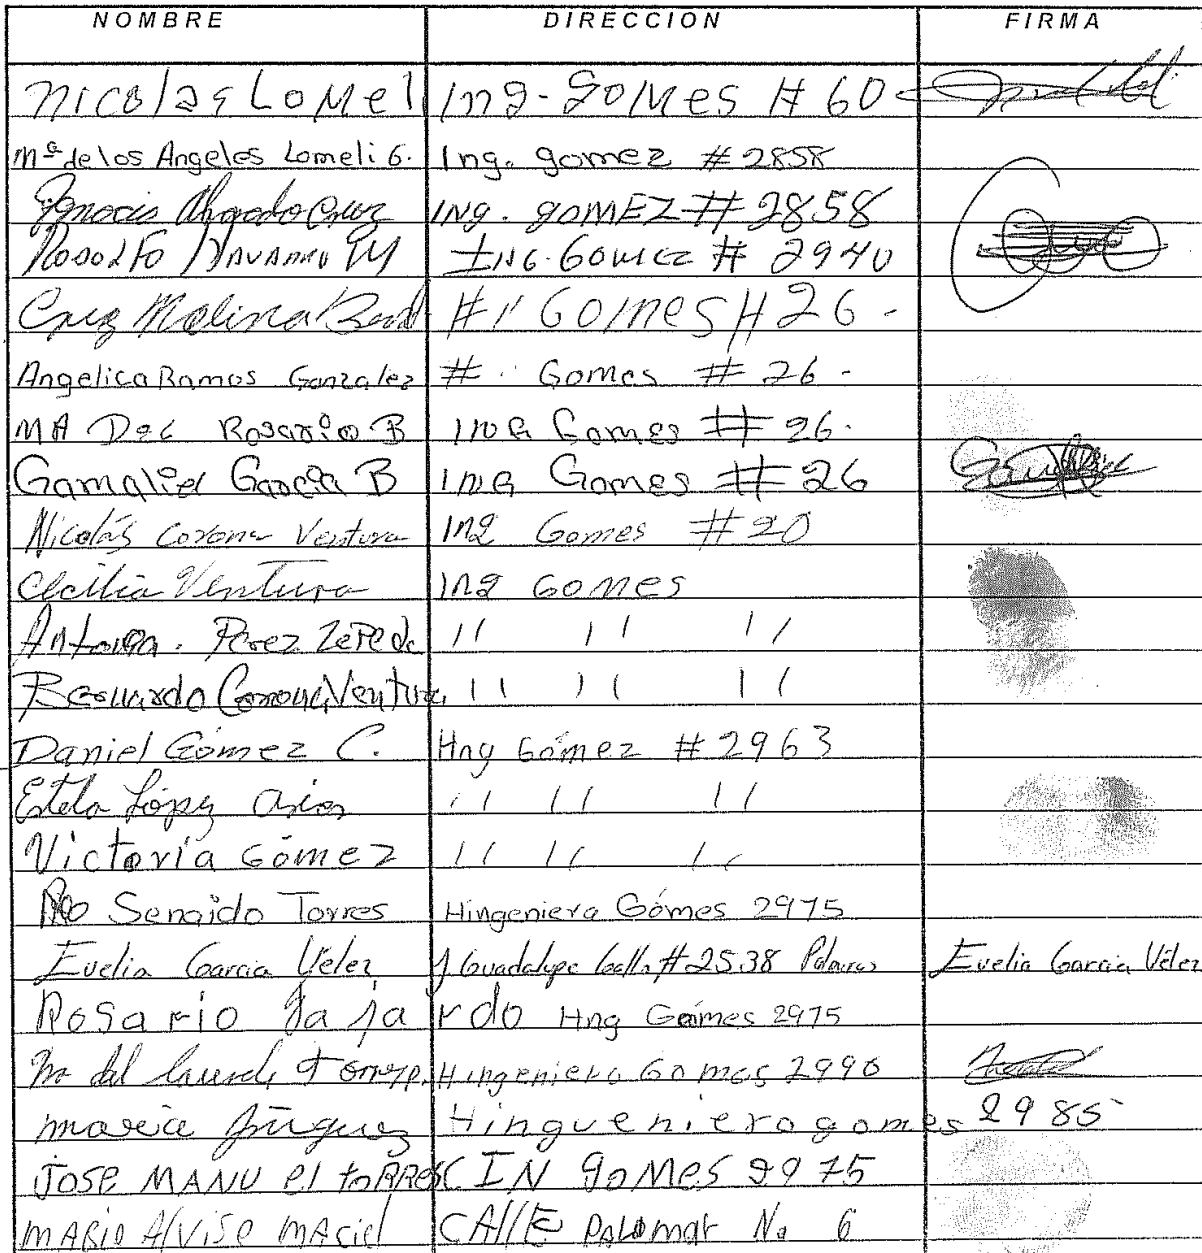 NOMBRE DIRECCION FIRMA
Nicolas Lomel Ing. Gomes # 60
Mª de los Angeles Lomeli G. Ing. gomez # 2858
Ignacio Cruz ING. gomEZ # 2858
Rodolfo Navarro M ING. Gomez # 2940
Cruz Molina # 11 Gomes # 26 -
Angelica Ramos Gonzalez # " Gomes # 26 -
MA Del Rosario B ing Gomes # 26.
Gamaliel Garcia B ing Gomes # 26
Nicolás Corona Ventura ing Gomes # 20
Cecilia Ventura ing Gomes
Antonia. Perez Zepeda 11 11 11
Bernardo Corona Ventura 11 11 11
Daniel Gómez C. Hng Gómez # 2963
Estela López Arias 11 11 11
Victoria Gómez 11 11 11
Senaido Torres Hingeniera Gómes 2975
Evelia Garcia Vélez J. Guadalupe Gallo # 2538 Evelia Garcia Vélez
Rosario Jajardo Hng Gómes 2975
Ma del Hingeniero Gomes 2996
maria Iñiguez Hinguenierogomes 2985
JOSE MANUel toRRes C IN gomes 2975
MARIO AlVisO MAciel CAllE PALOMAR No 6